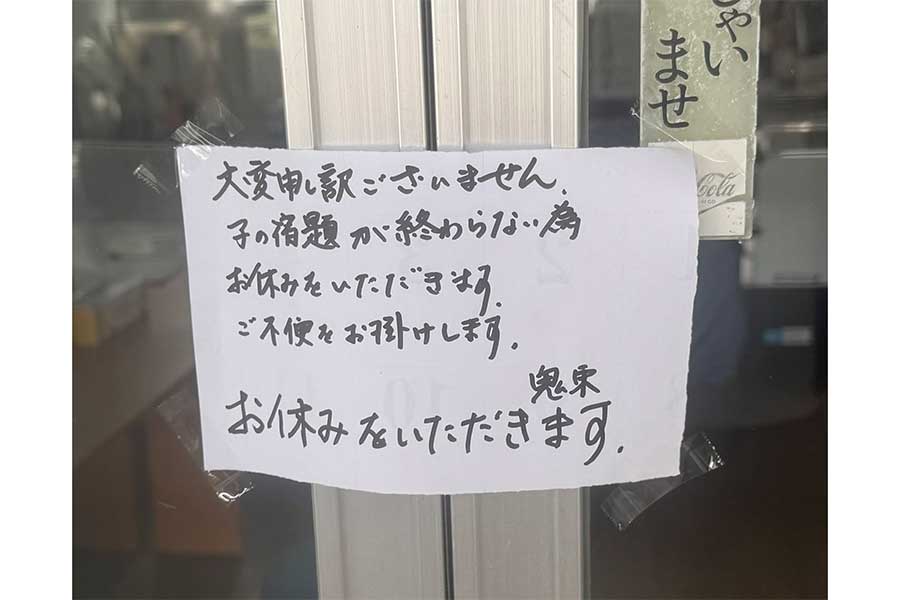 大変申し訳ございません。
子の宿題が終わらない為
お休みをいただきます。
ご不便をお掛けします。
鬼栄
お休みをいただきます。
ゃい
ませ
Cola